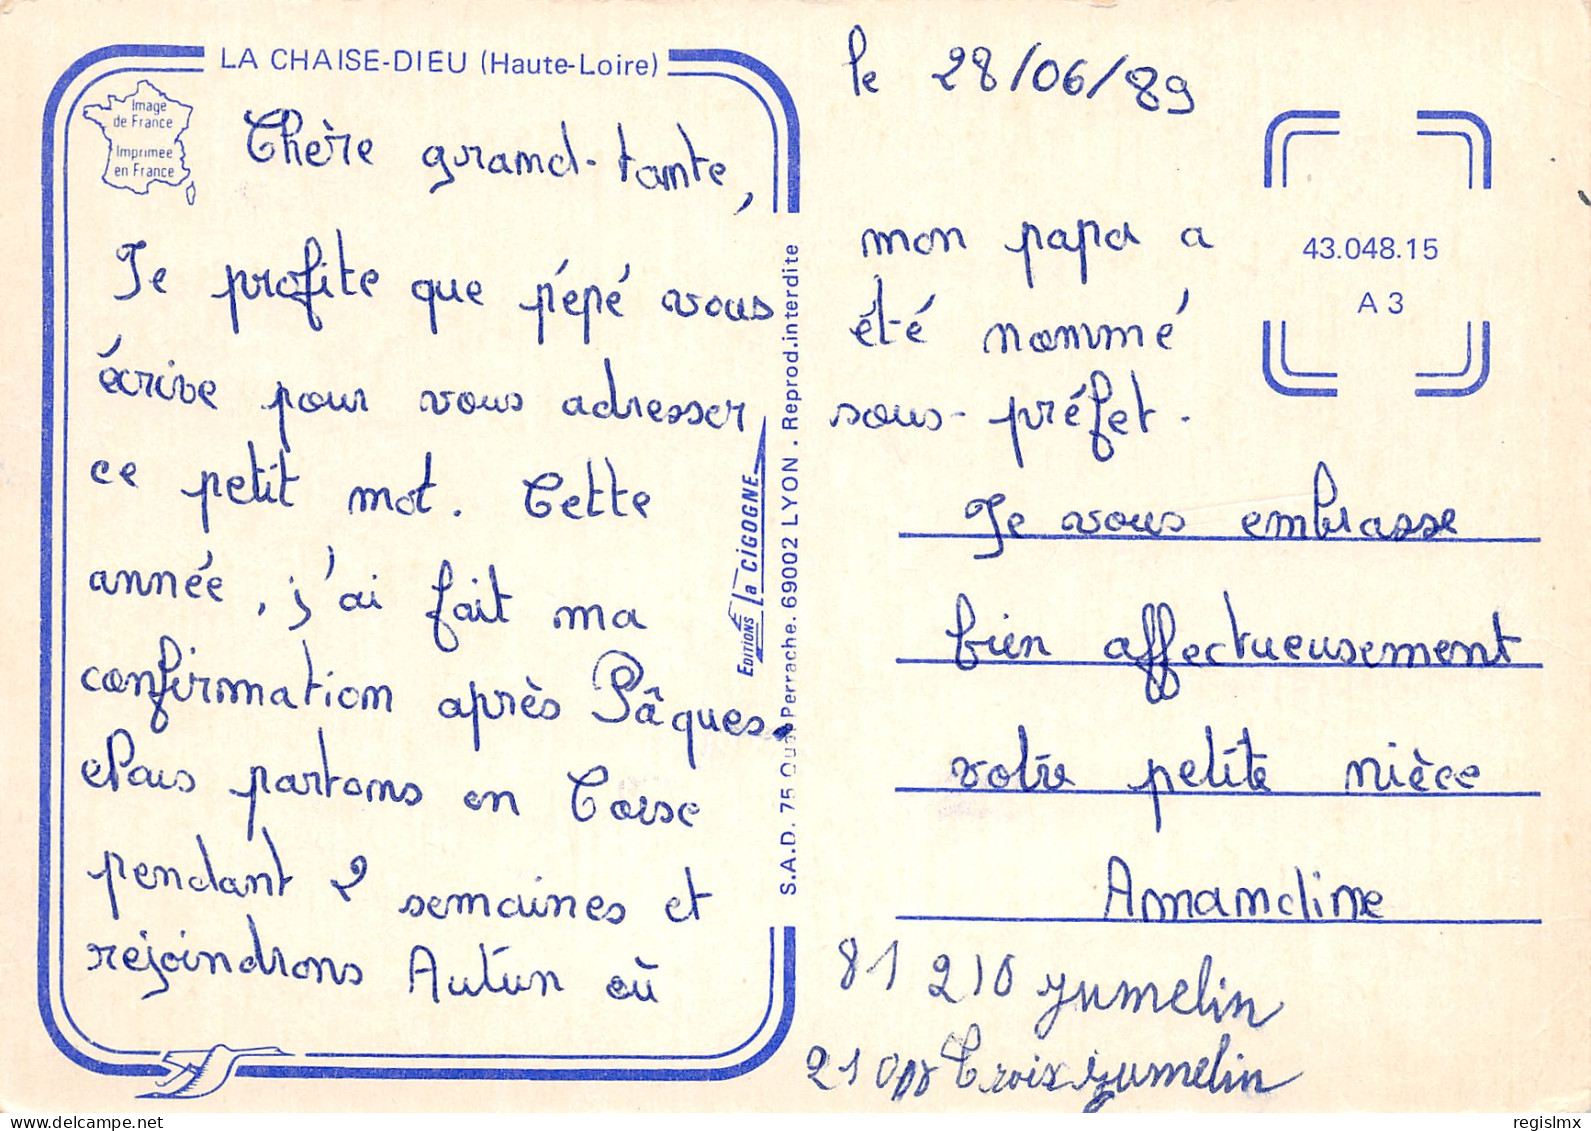 LA CHAISE-DIEU (Haute-Loire)
Image
de France
Imprimée
en France
Chère grand-tante,
Je profite que pépé vous
écrive pour vous adresser
ce petit mot. Cette
année, j'ai fait ma
confirmation après Pâques.
Nous partons en Corse
pendant 2 semaines et
rejoindrons Autun où
EDITIONS La CIGOGNE
S.A.D. 75 Quai Perrache. 69002 LYON . Reprod.interdite
le 28/06/89
mon papa a
été nommé
sous-préfet.
43.048.15
A 3
Je vous embrasse
bien affectueusement
votre petite nièce
Amandine
81 210 jumelin
21 Croix jumelin